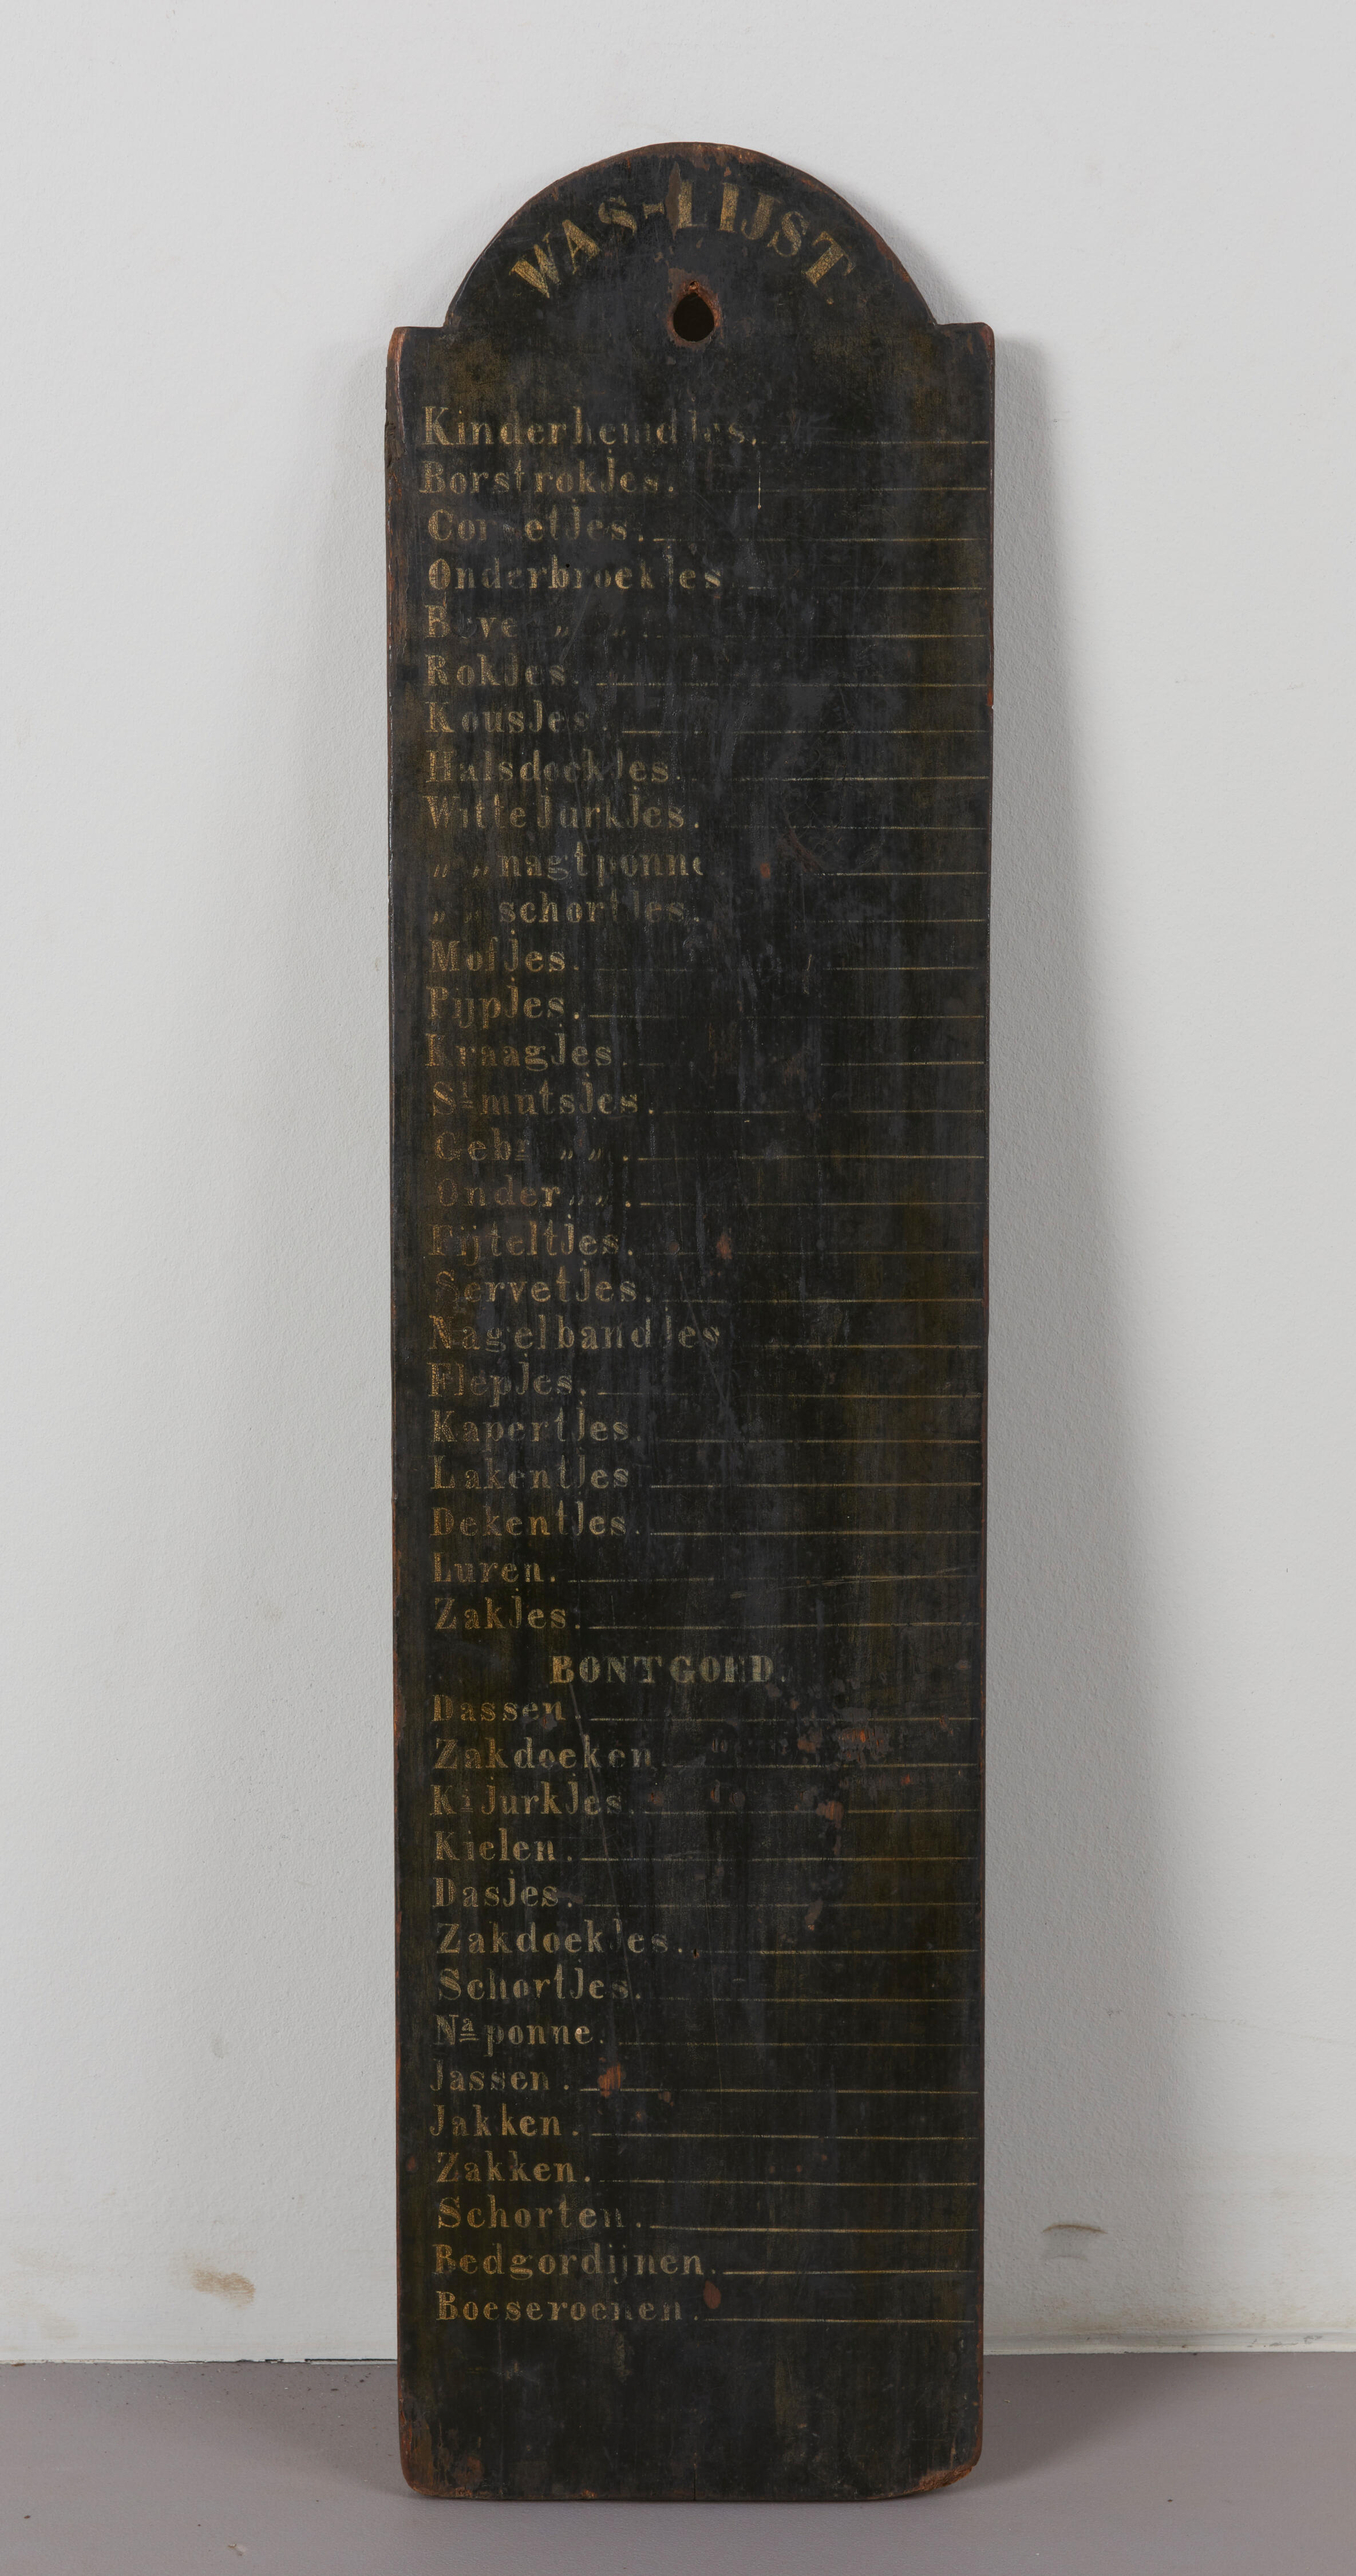 WAS-LIJST.
Kinderhemdjes.
Borstrokjes.
Corsetjes.
Onderbroekjes
Bove „ „ .
Rokjes.
Kousjes.
Halsdoekjes.
Witte jurkjes.
„ „ nagtponne
„ „ schortjes.
Mofjes.
Pijpjes.
Kraagjes.
Sl mutsjes.
Gebr „ „ .
Onder „ „ .
Fijteltjes.
Servetjes.
Nagelbandjes
Flepjes.
Kapertjes.
Lakentjes
Dekentjes.
Luren.
Zakjes.
BONTGOED.
Dassen.
Zakdoeken.
Ki jurkjes.
Kielen.
Dasjes.
Zakdoekjes.
Schortjes.
Na ponne.
Jassen.
Jakken.
Zakken.
Schorten.
Bedgordijnen.
Boeseroenen.